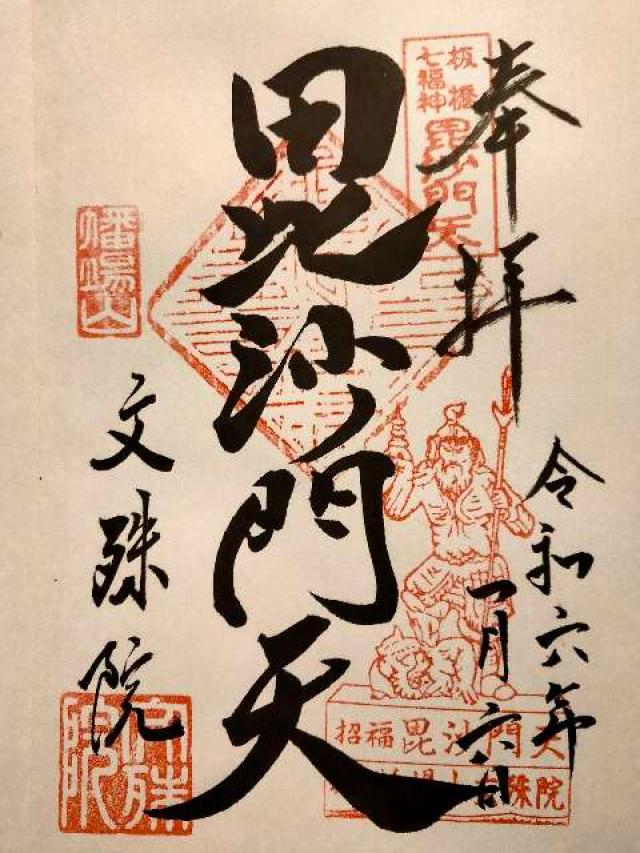 奉拝
令和六年
一月六日
板橋
七福神
毘沙門天
毘沙門天
幡場山
文殊院
文殊院
招福毘沙門天
殊院